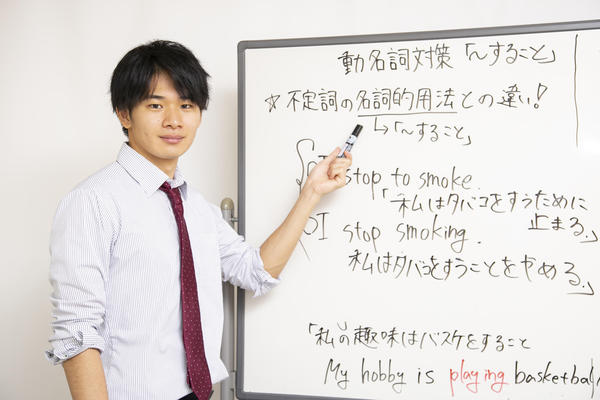 動名詞対策「~すること」
☆不定詞の名詞的用法との違い!
↳「~すること」
I stop to smoke.
「私はタバコをすうために
止まる。」
I stop smoking.
「私はタバコをすうことをやめる。」
「私の趣味はバスケをすること
My hobby is playing basketball